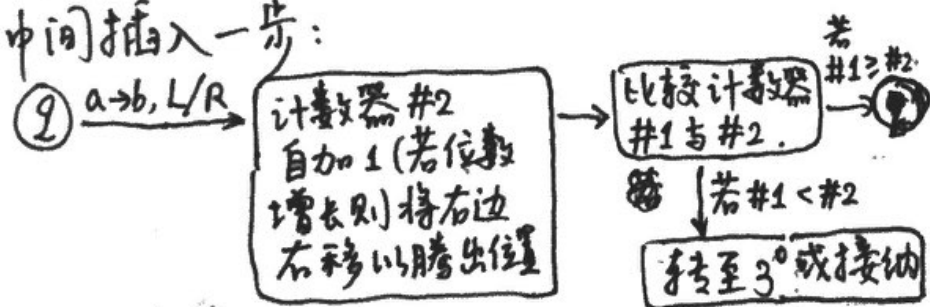 中间插入一步：
q
a→b, L/R
计数器 #2
自加 1 (若位数
增长则将右边
右移以腾出位置
比较计数器
#1 与 #2.
若
#1≥#2.
若 #1 < #2
转至 3° 或接纳